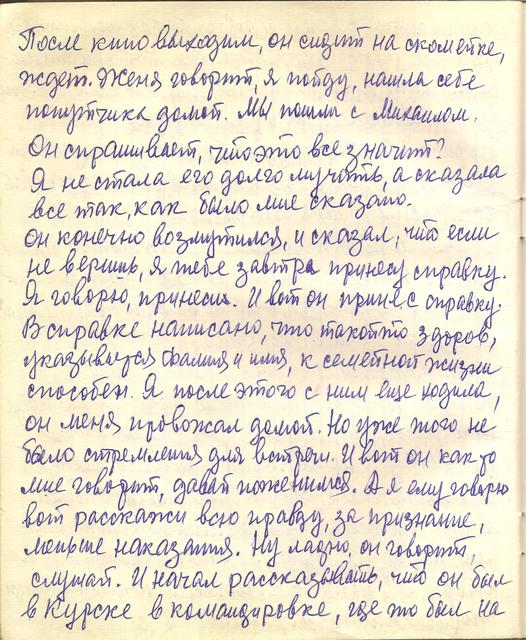 После кино выходим, он сидит на скометке,
ждет. Женя говорит, я пойду, нашла себе
попутчика домой. Мы пошли с Михаилом.
Он спрашивает, что это все значит?
Я не стала его долго мучить, а сказала
все так, как было мне сказано.
Он конечно возмутился, и сказал, что если
не веришь, я тебе завтра принесу справку.
Я говорю, принеси. И вот он принес справку.
В справке написано, что такой то здоров,
указывается фамилия и имя, к семейной жизни
способен. Я после этого с ним еще ходила,
он меня провожал домой. Но уже того не
было стремления для встречи. И вот он как то
мне говорит, давай поженимся. А я ему говорю
вот расскажи всю правду, за признание,
меньше наказания. Ну ладно, он говорит,
слушай. И начал рассказывать, что он был
в Курске в командировке, где то был на